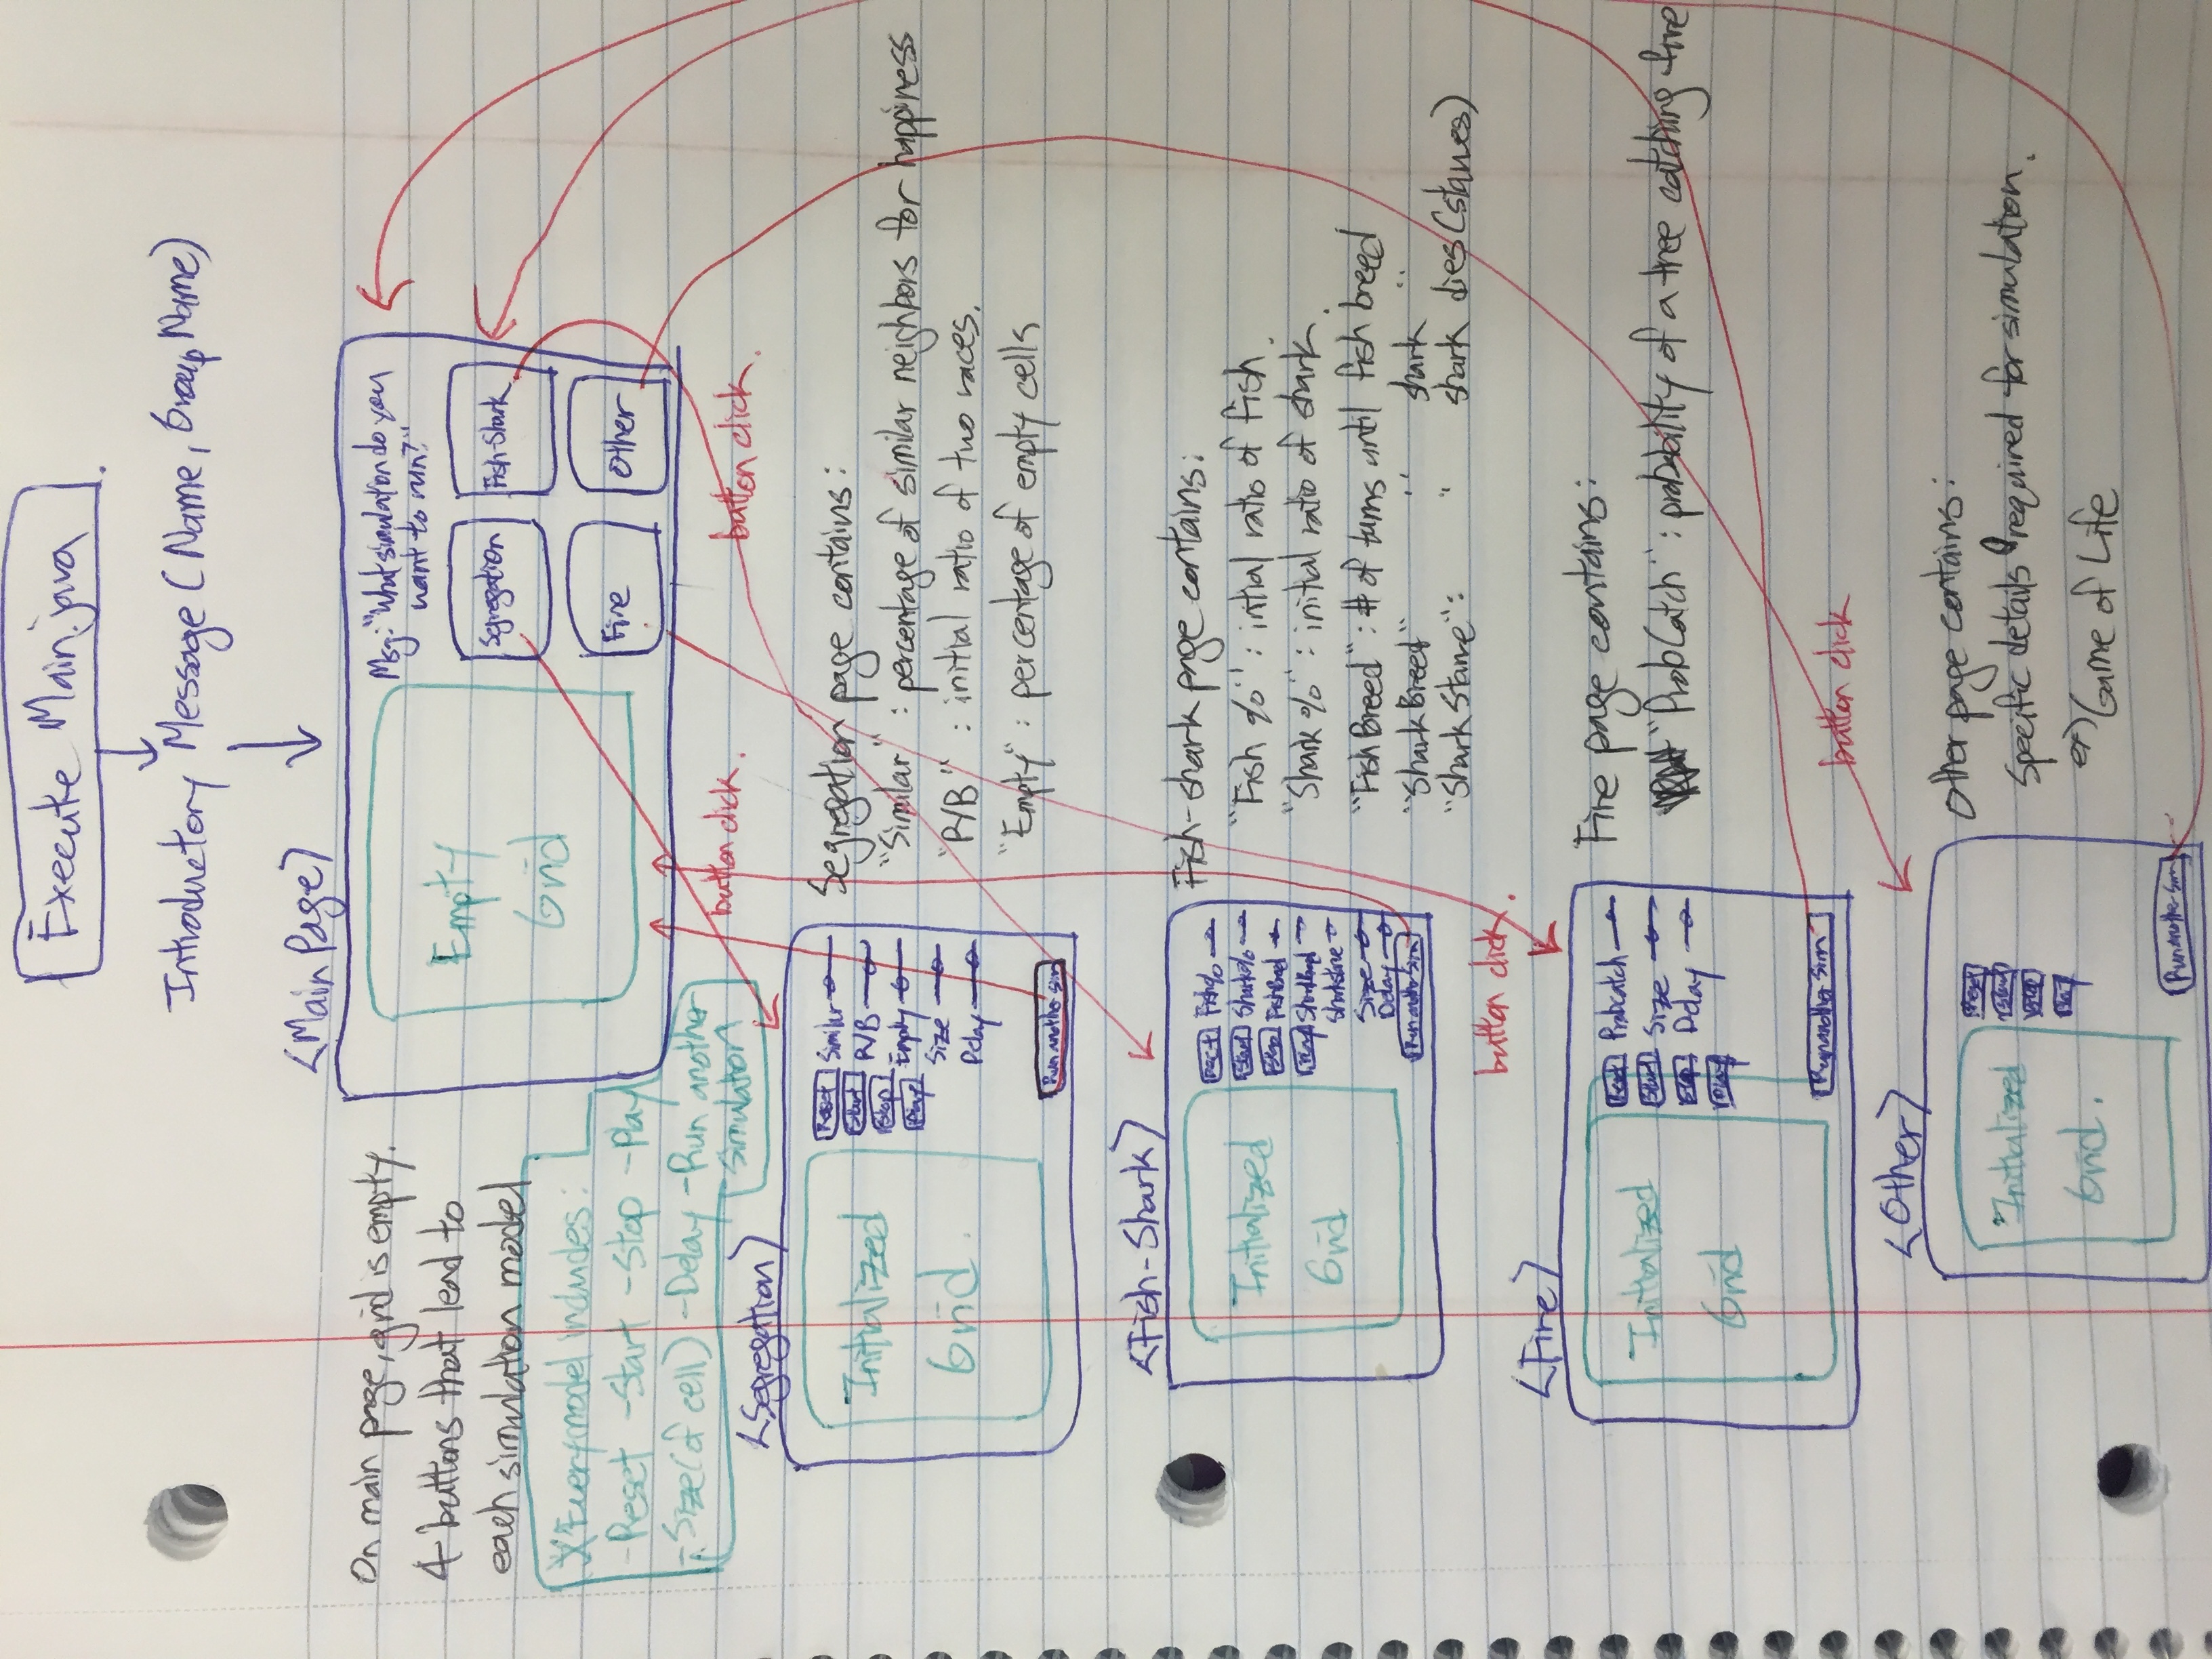 Execute Main.java
Introductory Message (Name, Group Name)
<Main Page>
On main page, grid is empty.
4 buttons that lead to
each simulation model
Empty
Grid
Msg: "What simulation do you
want to run?"
Segregation
Fish-Shark
Fire
Other
Every model includes:
-Reset -Start -Stop -Play
-Size(of cell) -Delay -Run another
Simulation
button click.
button click.
<Segregation>
Initialized
Grid.
Reset Similar
Start R/B
Stop Empty
Play
Size
Delay
Run another sim
Segregation page contains:
"Similar" : percentage of similar neighbors for happiness
"R/B" : initial ratio of two races.
"Empty" : percentage of empty cells
<Fish-Shark>
Initialized
Grid
Reset Fish%
Start Shark%
Stop FishBreed
Play SharkBreed
Sharkstarve
Size
Delay
Run another Sim
Fish-shark page contains:
"Fish %" : initial ratio of fish.
"Shark %" : initial ratio of shark.
"FishBreed" : # of turns until fish breed
"SharkBreed" " shark "
"SharkStarve": " shark dies (starves)
button click.
<Fire>
Initialized
Grid
Reset Probcatch
Start Size
Stop Delay
Play
Run another Sim
Fire page contains:
"ProbCatch" : probability of a tree catching fire
button click
<Other>
Initialized
Grid.
Reset
Start
Stop
Play
Run another Sim
Other page contains:
Specific details required for simulation.
ex) Game of Life